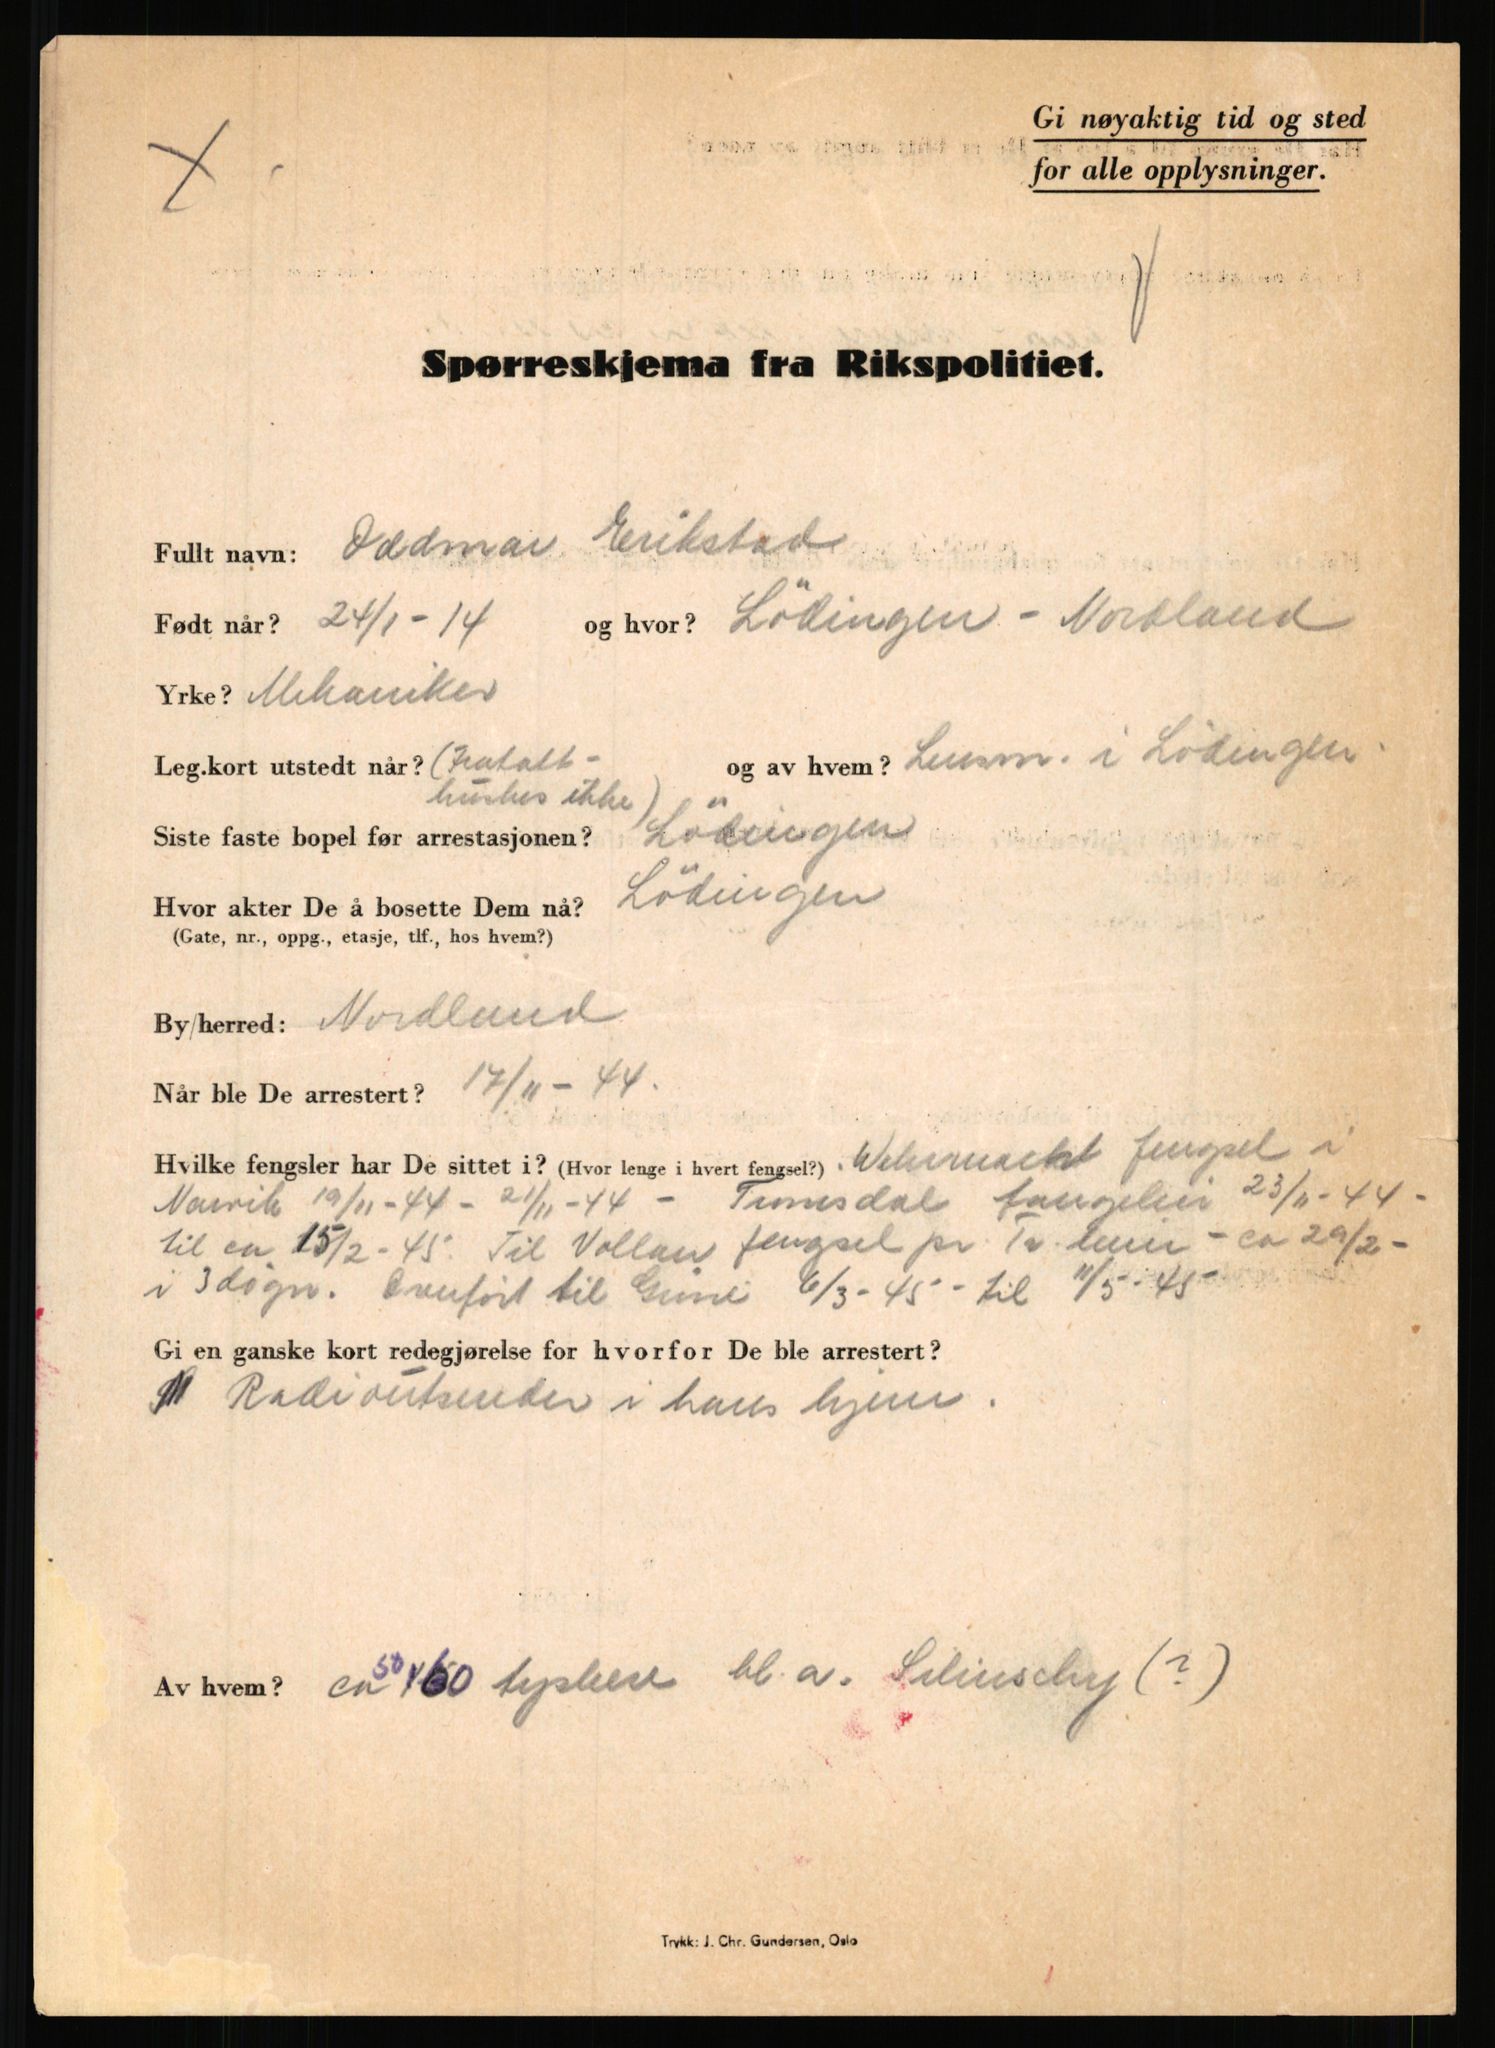 Gi nøyaktig tid og sted
for alle opplysninger.
Spørreskjema fra Rikspolitiet.
Fullt navn: Oddmar Erikstad
Født når? 24/1 - 14 og hvor? Lödingen - Nordland
Yrke? Mekaniker
Leg.kort utstedt når? (Fratatt - og av hvem? Lensm. i Lödingen
huskes ikke)
Siste faste bopel før arrestasjonen? Lödingen
Hvor akter De å bosette Dem nå? Lödingen
(Gate, nr., oppg., etasje, tlf., hos hvem?)
By/herred: Nordland
Når ble De arrestert? 17/11 - 44.
Hvilke fengsler har De sittet i? (Hvor lenge i hvert fengsel?). Wehrmacht fengsel i
Narvik 19/11-44 - 21/11-44 - Tromsdal fangeleir 23/11-44-
til ca 15/2-45. Til Vollan fengsel pr. Tr. leir - ca 29/2-
i 3 døgn. Overfört til Grini 6/3-45 - til 11/5-45
Gi en ganske kort redegjørelse for hvorfor De ble arrestert?
Radioutsender i hans hjem.
Av hvem? ca 50 tyskere bl. a. (?)
Trykk: J. Chr. Gundersen, Oslo